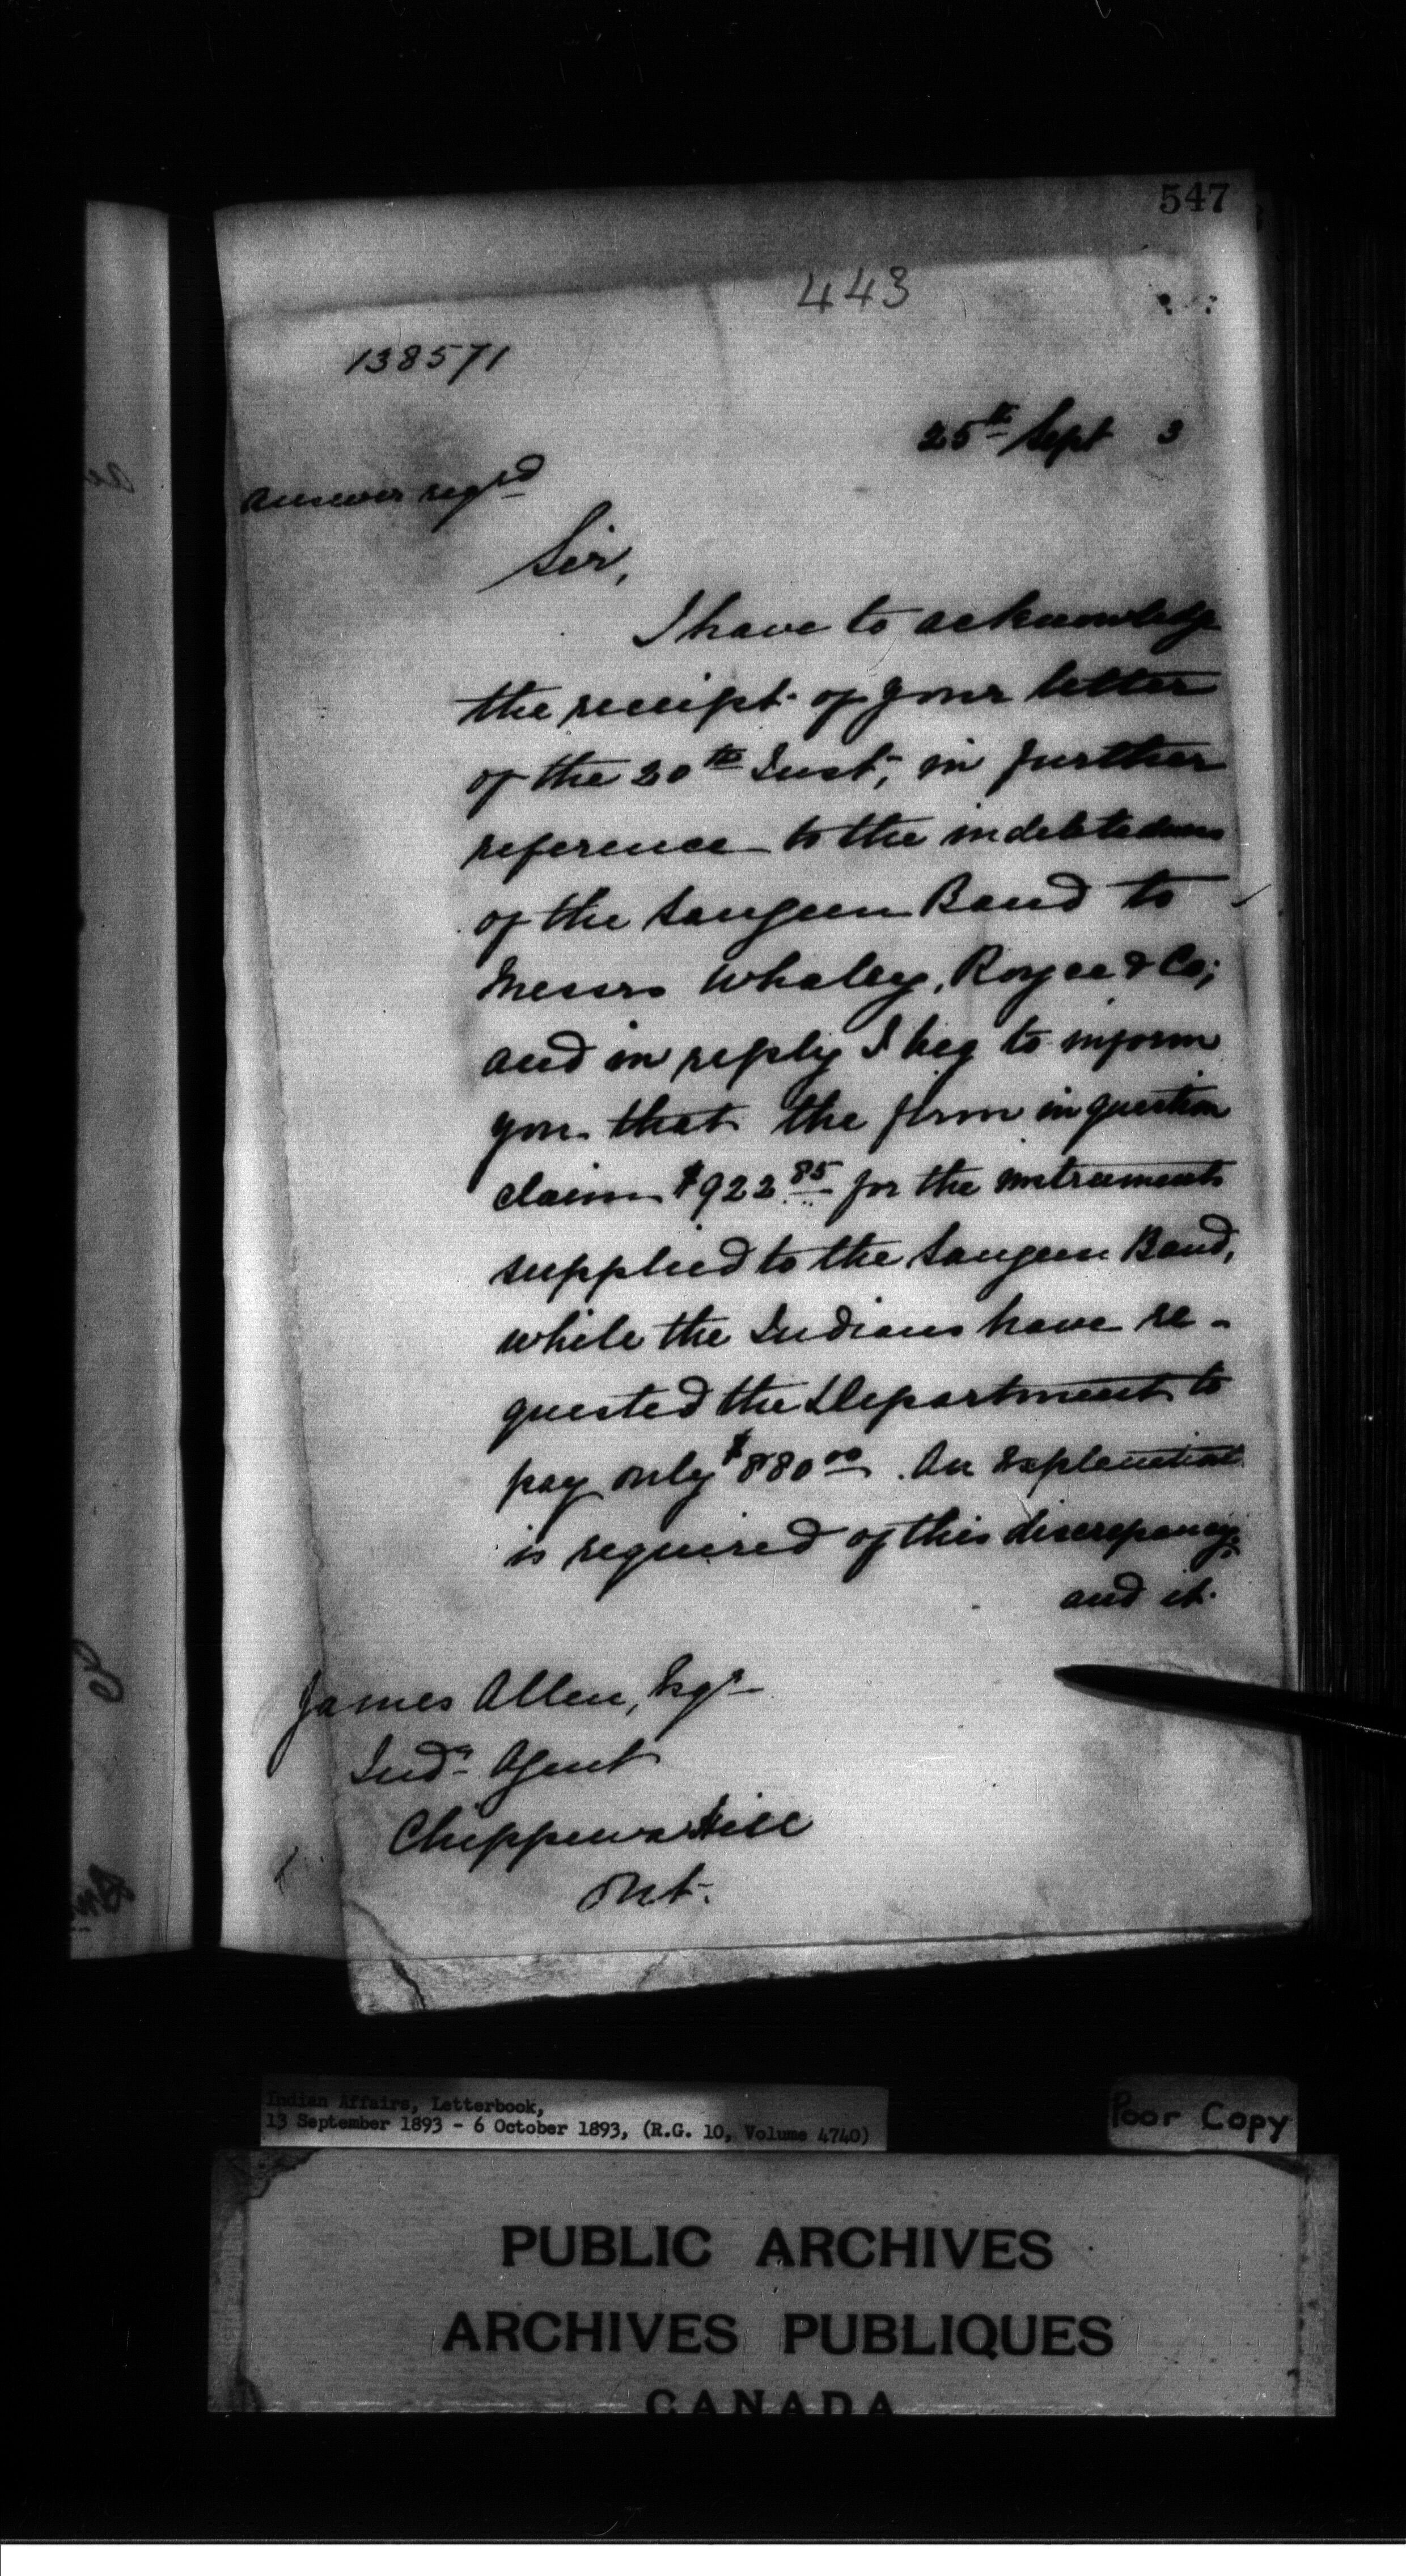 547
443
138571
25th Sept 3
Answer reqrd
Sir,
I have to acknowledge
the receipt of your letter
of the 20th Inst, in further
reference to the indebtedness
of the Saugeen Band to
Messrs Whaley, Royce & Co;
and in reply I beg to inform
you that the firm in question
claim $922.85 for the instruments
supplied to the Saugeen Band,
while the Indians have re-
quested the Department to
pay only $880.00. An explanation
is required of this discrepancy;
and it
James Allen, Esqr
Indn Agent
Chippewa Hill
Ont.
Indian Affairs, Letterbook,
13 September 1893 - 6 October 1893, (R.G. 10, Volume 4740)
Poor Copy
PUBLIC ARCHIVES
ARCHIVES PUBLIQUES
CANADA